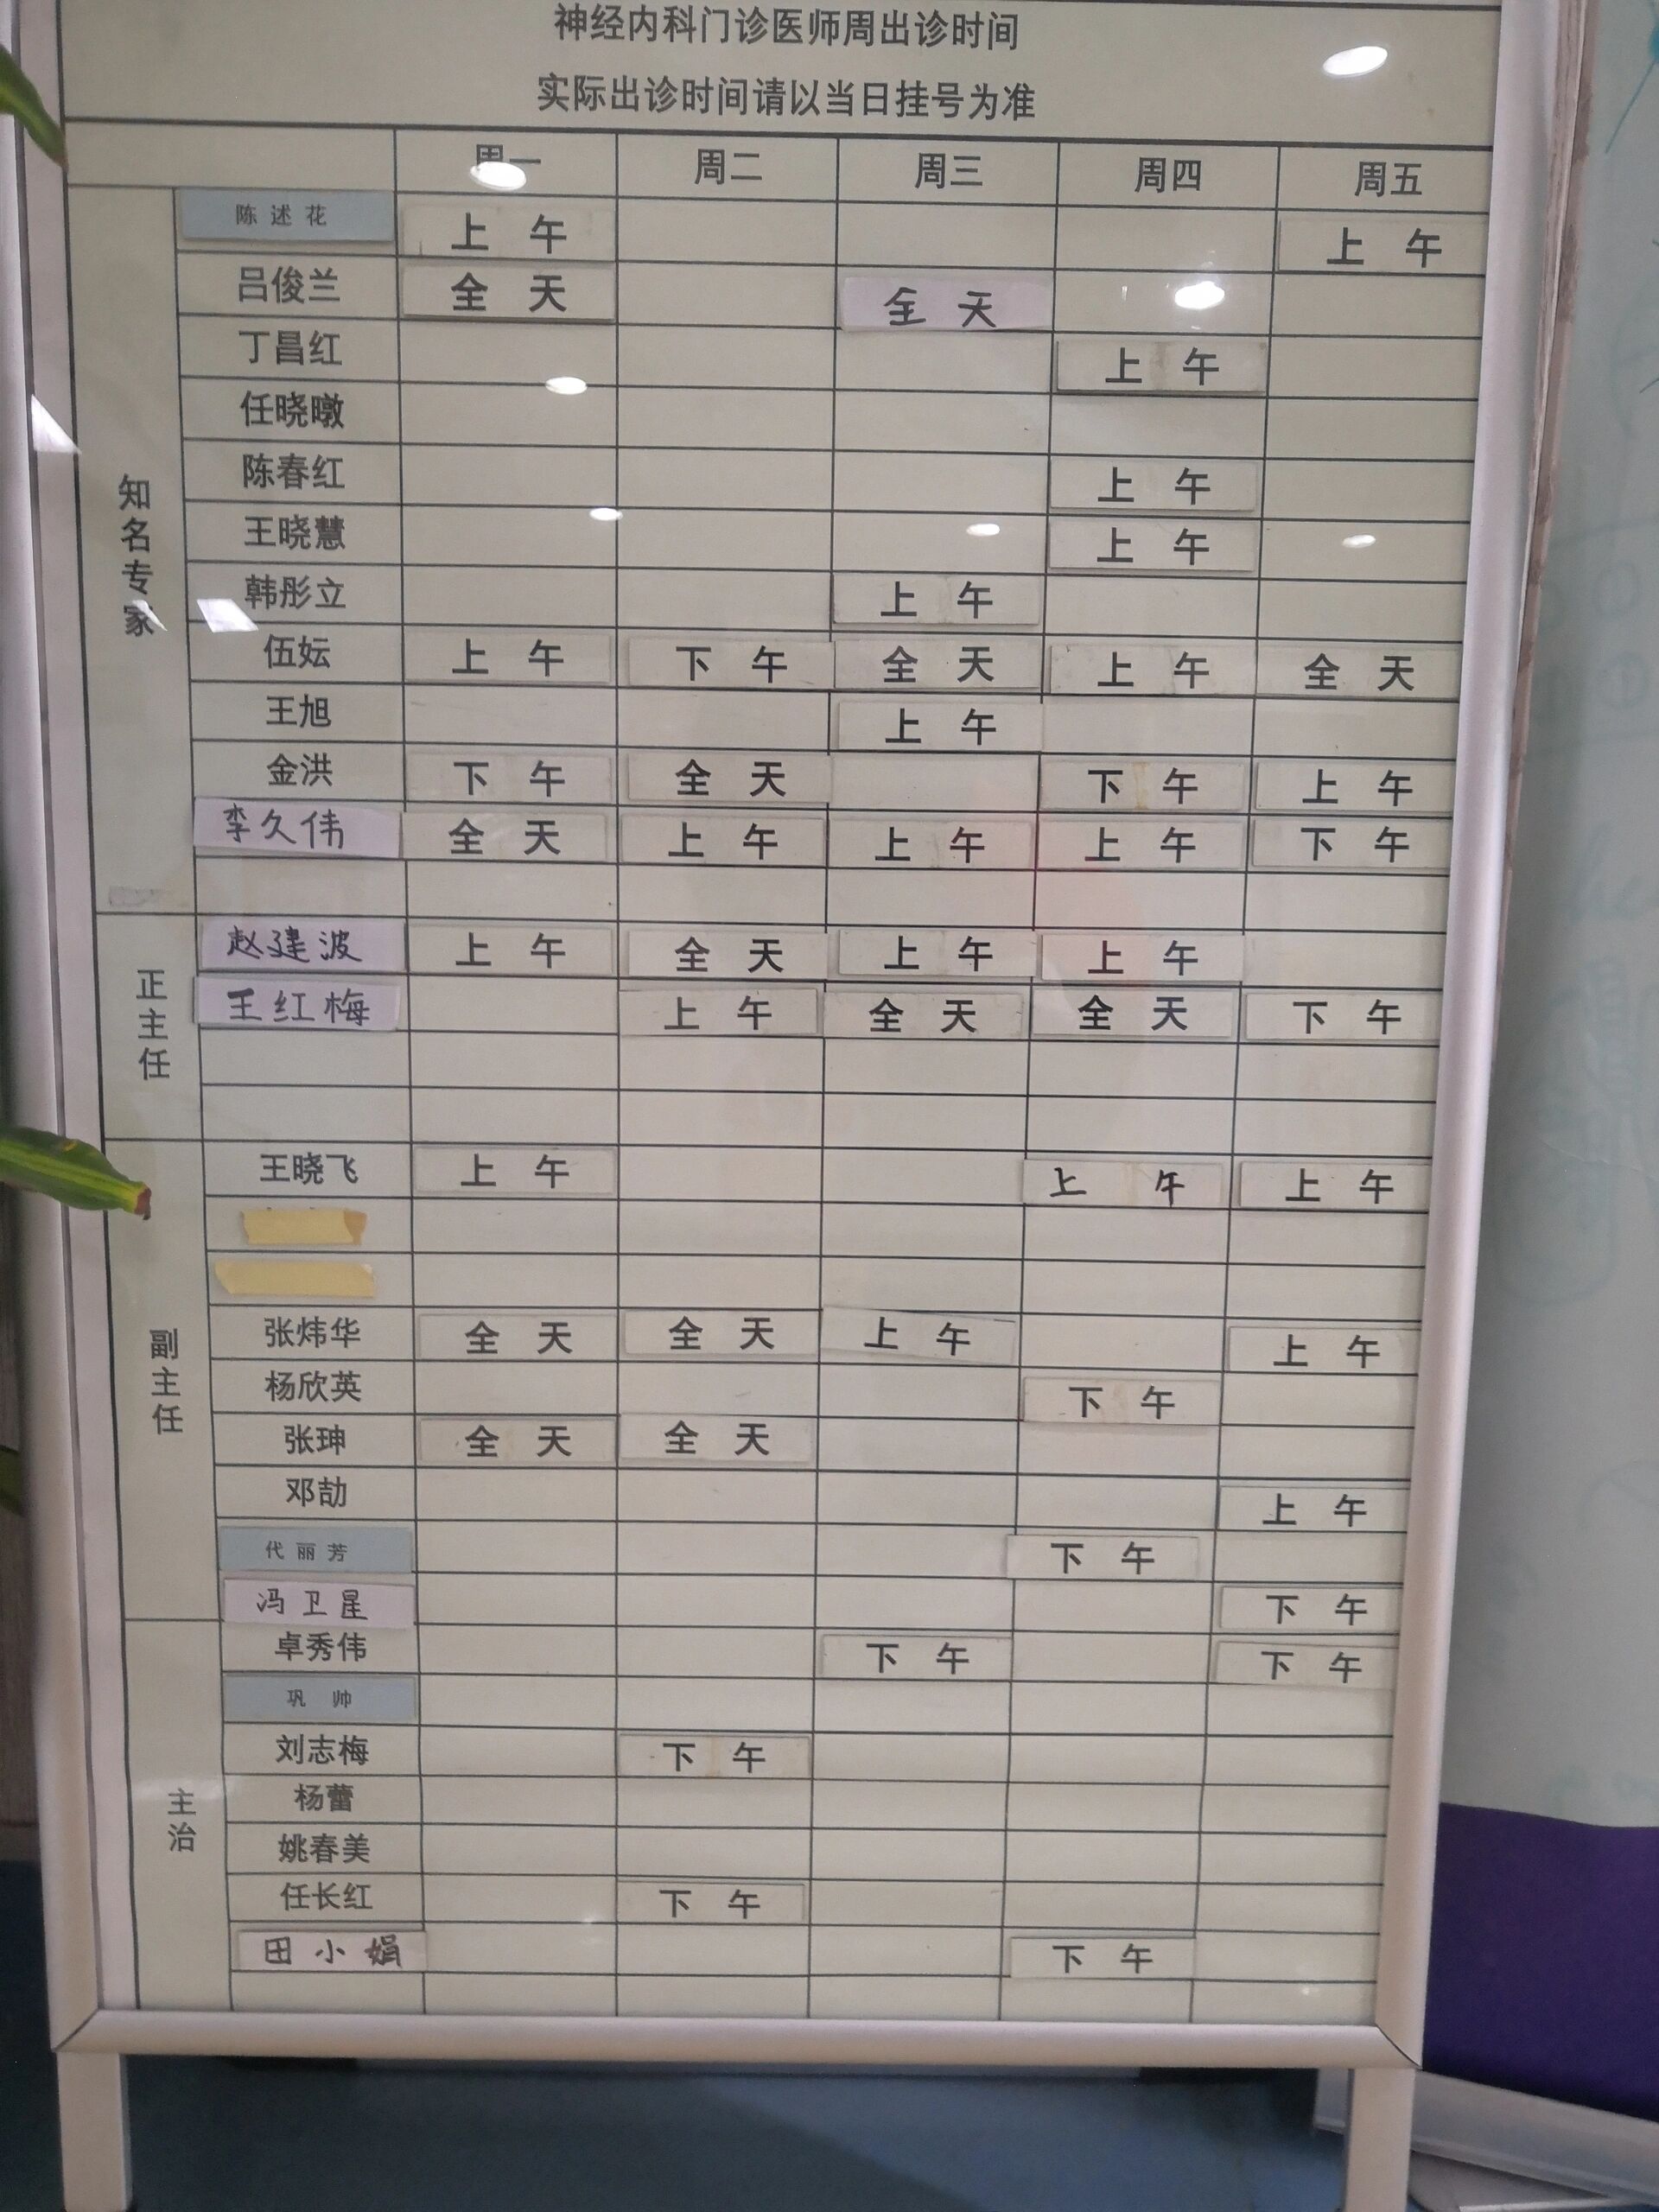 神经内科门诊医师周出诊时间
实际出诊时间请以当日挂号为准
周一 周二 周三 周四 周五
知名专家
陈述花 上午 上午
吕俊兰 全天 全天
丁昌红 上午
任晓暾
陈春红 上午
王晓慧 上午
韩彤立 上午
伍妘 上午 下午 全天 上午 全天
王旭 上午
金洪 下午 全天 下午 上午
李久伟 全天 上午 上午 上午 下午
正主任
赵建波 上午 全天 上午 上午
王红梅 上午 全天 全天 下午
副主任
王晓飞 上午 上午 上午
张炜华 全天 全天 上午 上午
杨欣英 下午
张珅 全天 全天
邓劼 上午
代丽芳 下午
冯卫星 下午
主治
卓秀伟 下午 下午
巩帅
刘志梅 下午
杨蕾
姚春美
任长红 下午
田小娟 下午